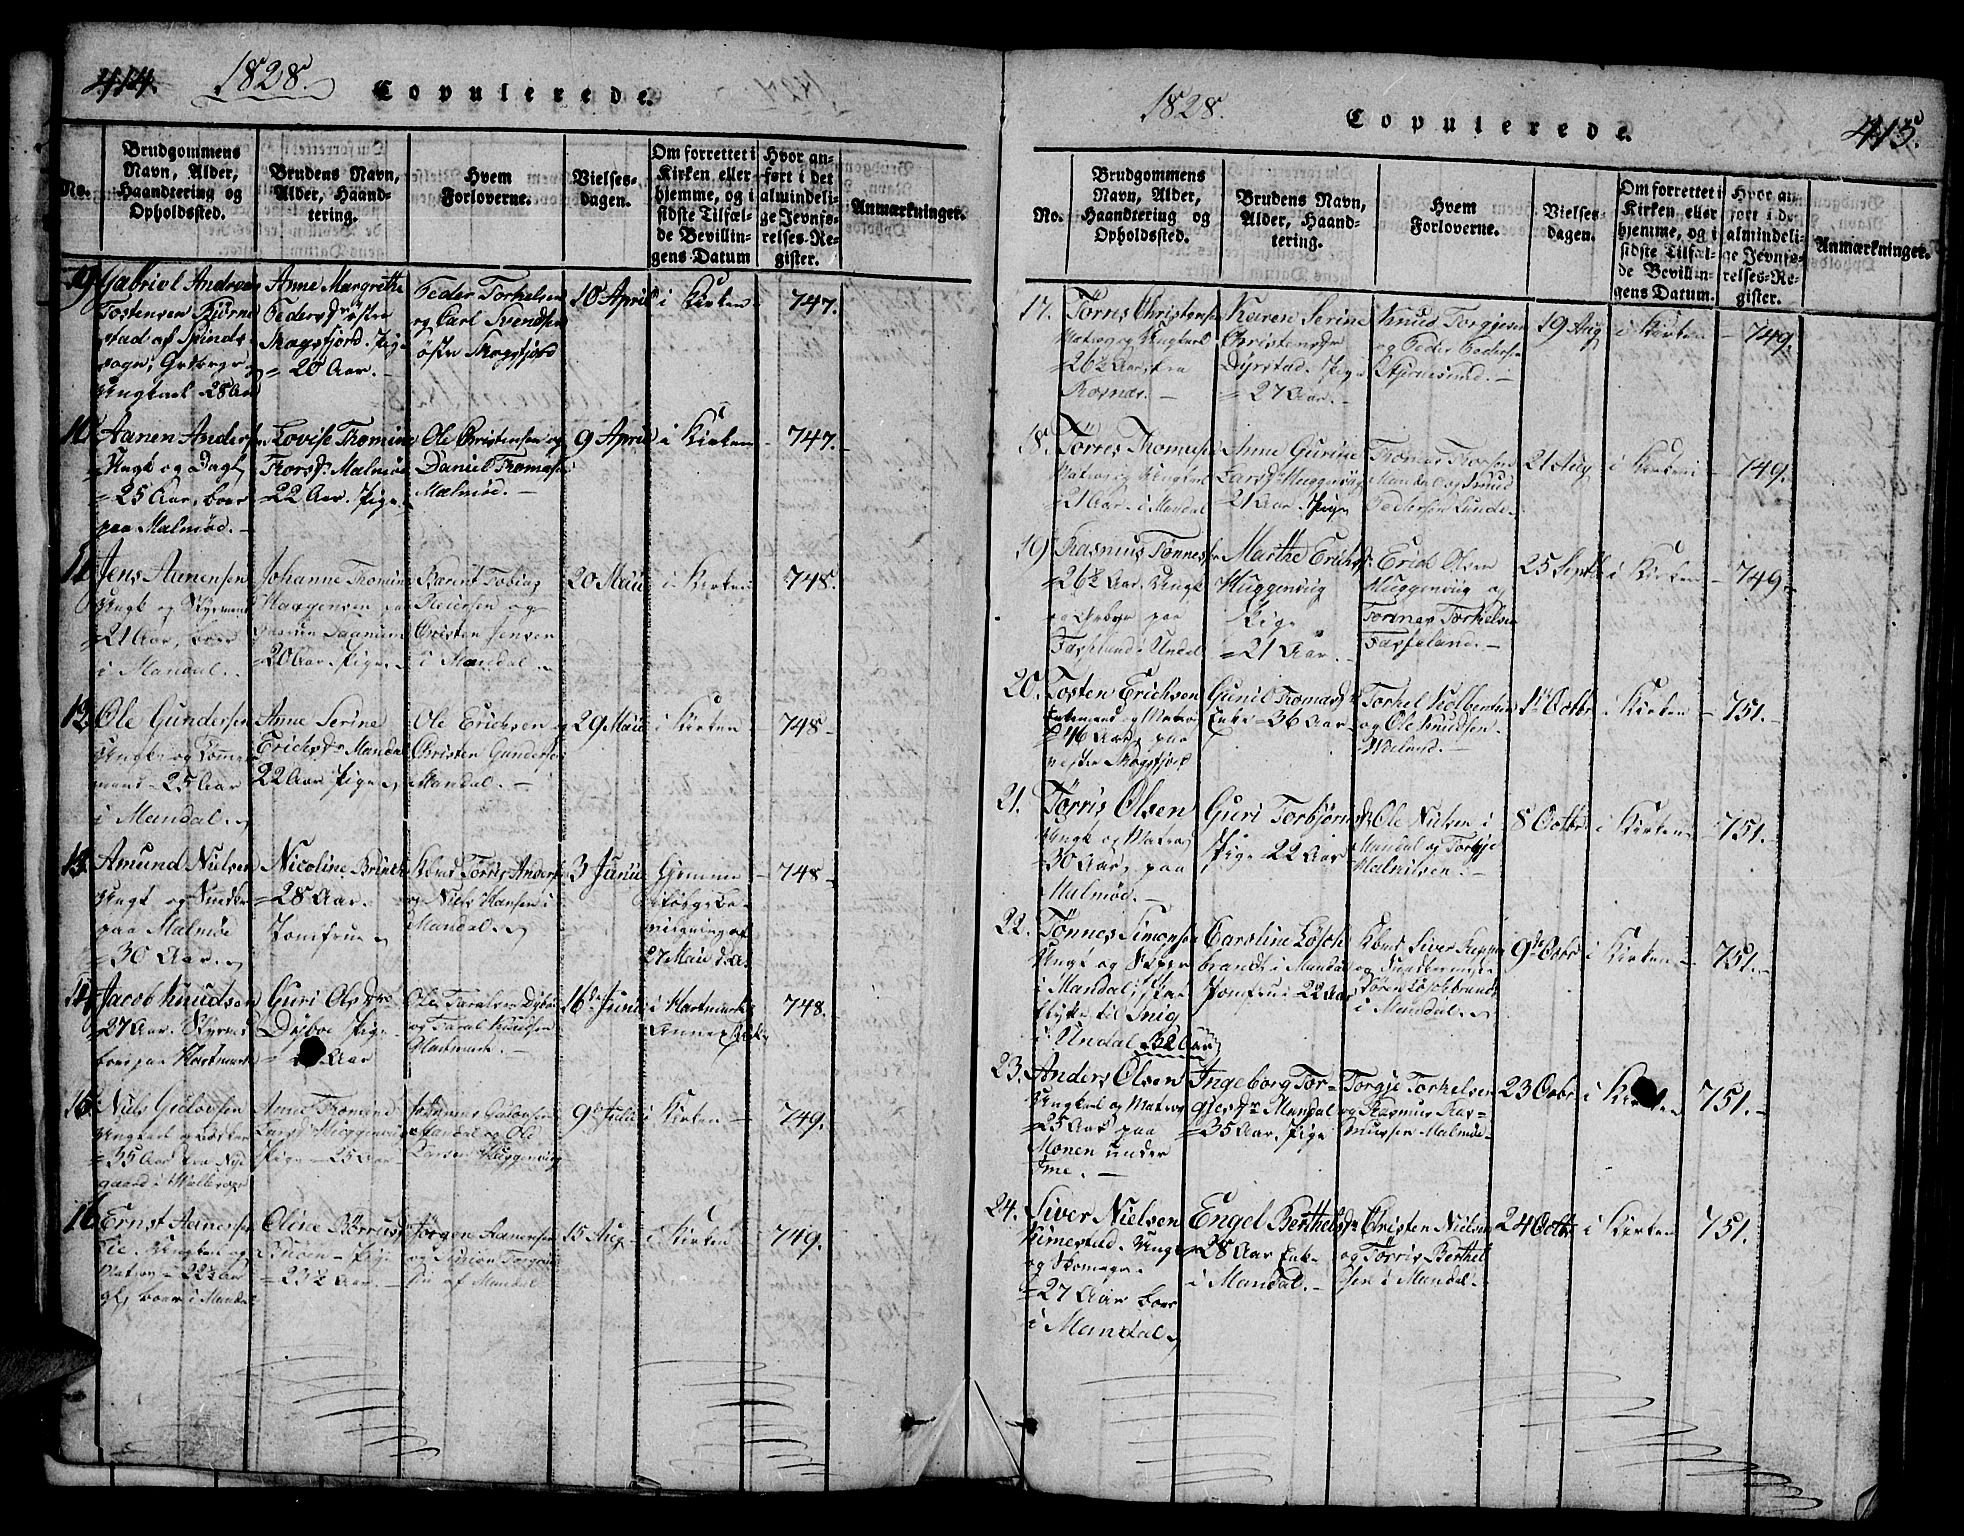 414.
1828.
Copulerede.
No.
Brudgommens
Navn, Alder,
Haandtering og
Opholdssted.
Brudens Navn,
Alder, Haand-
tering.
Hvem
Forloverne.
Vielses-
dagen.
Om forrettet i
Kirken eller
hjemme, og i
sidste Tilfæl-
de Bevillin-
gens Datum
Hvor an-
ført i det
almindeli-
ge Jevnfø-
relses-Re-
gister.
Anmærkninger.
Gabriel Andreas
Tostensen Biörne
stad af Spinds
sogn, 28 Aar
Anne Margrethe
Peders dr östre
Skogsfjord. Pige
= 20 Aar. –
Peder Torkelsen
og Carl Svendsen
östre Skogsfjord
10 April
i Kirken
747.
10. Aanen Anders
Ungk og
= 25 Aar, boer
paa Malmöe. –
Lovise Thomine
Thorsd. Malmöe
= 22 Aar. Pige
Ole Christensen og
Daniel Thomass
Malmöe. –
9 April
i Kirken
747.
Jens Aanensen
Ungk og Styrmand
= 21 Aar, boer
i Mandal. –
Johanne Thomine
20 Aar. Pige. –
Berent Tobias
Reiersen og
Christen Jensen
i Mandal. –
20 Maii
i Kirken
748.
12. Ole Gundersen
= 25 Aar
i Mandal.
Anne Serine
Erichsdr Mandal
22 Aar Pige
Ole Erichsen og
Christen Gundersen
Mandal. –
29 Maii
i Kirken
748 –
Amund Nielsen
Ungk og
paa Malmöe
= 30 Aar.
Nicoline Brinch
= 28 Aar.
Jomfrue
Törris Anders
og Niels Hansen i
Mandal.
3 Junii
Hjemme
ifölge be-
vilgning af
27 Maii d. A.
748 –
14. Jacob Knudsen
= 27 Aar. Styrmd
boer paa Hartmark
Guri Olsdr
Dyboe Pige
Aar
Ole Taralsen Dyboe
og Taral Knudsen
Hartmark. –
16 de Junii
i Hartmark
Annex Kirke
748.
15. Niels Gidovsen
= 35 Aar fra Nye
gaard i Halleraas
Anne Thomine
Larsd Huggenvig
Pige – 25 Aar
Mandal og Ole
Larsen Huggenvig
9 de Julii
i Kirken
749.
16. Ernst Aanensen
Lie. Ungkarl og
Matros – 22½ Aar
gl, boer i Mandal
Oline Börrusd
Buöen – Pige
= 23½ Aar. –
Jörgen Aanensen
og
Lie af Mandal
15 Aug –
i Kirken
749.
1828.
Copulerede.
415.
No.
Brudgommens
Navn, Alder,
Haandtering og
Opholdssted.
Brudens Navn,
Alder, Haand-
tering.
Hvem
Forloverne.
Vielses-
dagen.
Om forrettet i
Kirken eller
hjemme, og i
sidste Tilfæl-
de Bevillin-
gens Datum.
Hvor an-
ført i de
almindeli-
ge Jevnfø-
relses-Re-
gister.
Anmærkninger.
17. Törris Christensen
Matros og Ungkarl
= 26½ Aar, fra
Rosnæs. –
Karen Serine
Christensdr
Dyrstad. Pige
= 27 Aar. –
Knud Torgjesen
og Peder Pedersen
Stjernesund. –
19 Aug
i Kirken
749.
18. Törres Thomasen
Matros og Ungkarl
= 21 Aar. i Mandal
Anne Gurine
Larsd Huggenvig
21 Aar. Pige
Thomas Torsen
Mandal og Knud
Pedersen Lunde –
21 Aug
i Kirken
749.
19. Rasmus Tönnesen
= 26½ Aar. Ungk
paa
i Undal
Marthe Erichs
Huggenviig
Pige
= 21 Aar. –
Erich Olsen
Huggenviig og
Tönnes Torkelsen
Fasseland. –
25 Septb
i Kirken
749.
20. Tosten Erichsen
Enkemand og Matros
46 Aar, paa
vestre Skogsfjord
Gunil Thomasdr
Enke – 36 Aar
Torkel Kolbentsen
og Ole Knudsen
Waland. –
1 Octbr
i Kirken
751. –
21. Törris Olsen
Ungk og Matros
= 30 Aar, paa
Malmöe. –
Guri Torbjörns dr
Pige – 22 Aar
Ole Nielsen i
Mandal og Torgje
Halvilsen. –
8 Octbr
i Kirken
751.
22. Tönnes Simonsen
Ungk og
i Mandal;
til Snig
i Undal 32 Aar
Caroline Lösch
brandt i Mandal
Jomfrue 22 Aar
Siver
og
Sören Löschbrandt
i Mandal.
9 de Octbr
i Kirken
751. –
23. Anders Olsen
Ungkarl og Matros
= 25 Aar paa
Monen under
Ime. –
Ingeborg Tor-
gjesdr Mandal
= 35 Aar. Pige
Torgje Torkelsen
og Rasmus Ras-
mussen Malmöe. –
23 Octbr
i Kirken
751. –
24. Siver Nielsen
Kimestad. Ungk
og Skomager
= 27 Aar boer
i Mandal
Engel Berthelsdr
= 28 Aar Enke
i Mandal. –
Christen Nielsen
og Törris Berthel
sen i Mandal. –
24 Octbr
i Kirken
751.